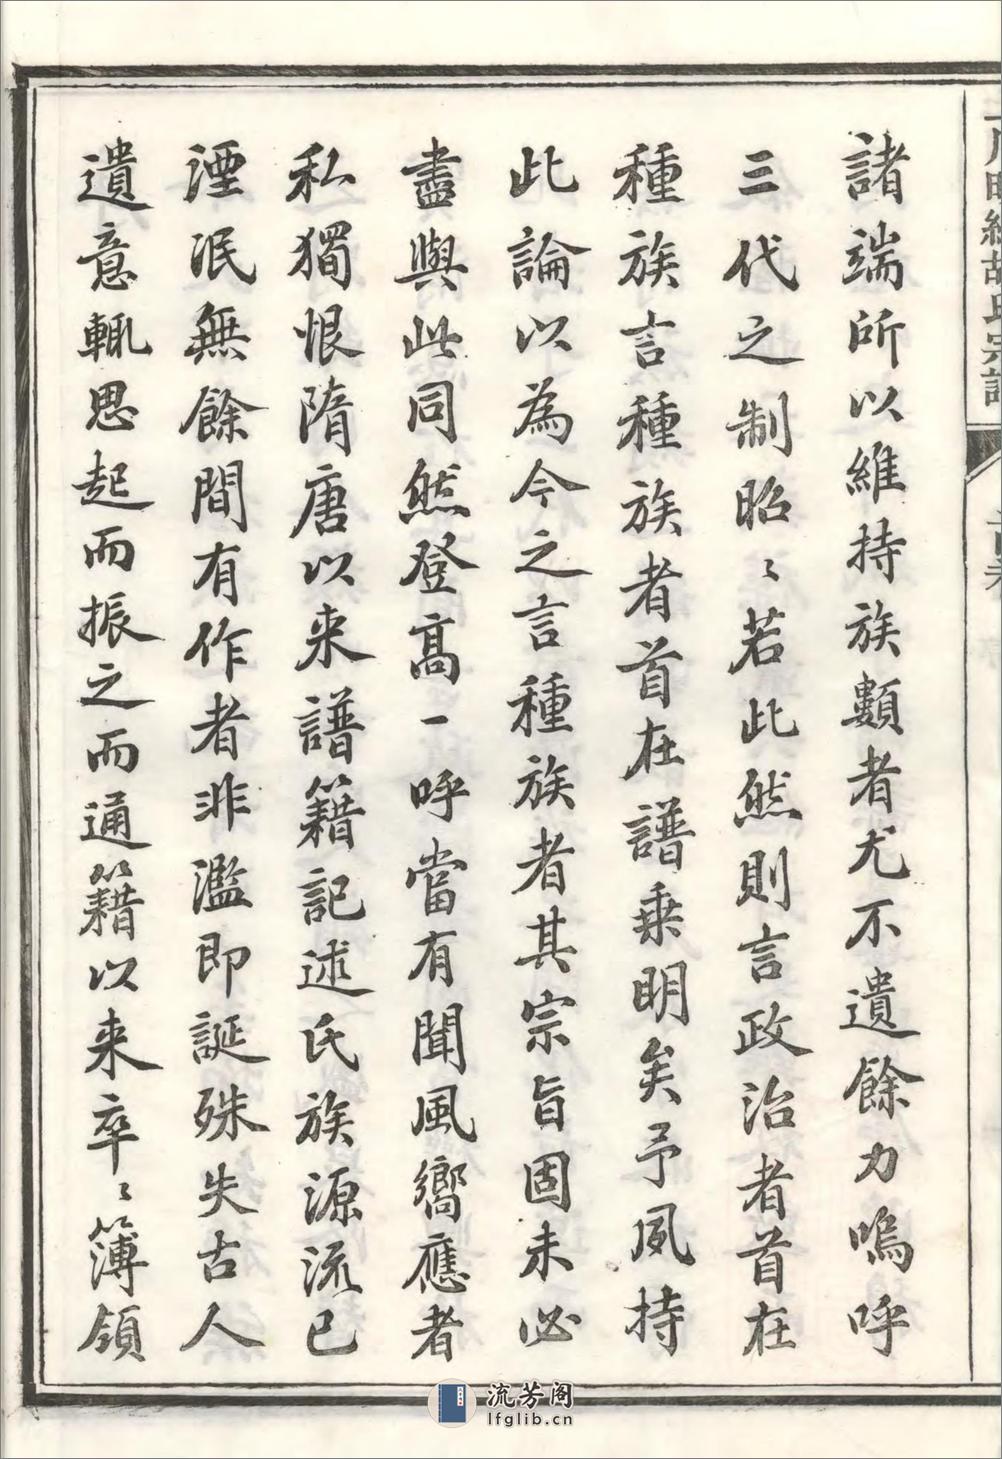 諸端所以維持族類者尤不遺餘力嗚呼
三代之制昭〻若此然則言政治者首在
種族言種族者首在譜乗明矣予夙持
此論以為今之言種族者其宗旨固未必
盡與此同然登高一呼當有聞風嚮應者
私獨恨隋唐以来譜籍記述氏族源流已
湮泯無餘間有作者非濫即誕殊失古人
遺意輒思起而振之而通籍以来卒〻簿領
明經胡氏宗譜
流芳阁
lfglib.cn